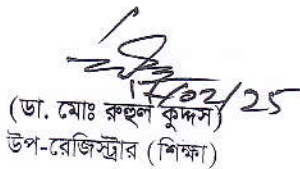 17/02/25
(ডা. মোঃ রুহুল কুদ্দস)
উপ-রেজিস্ট্রার (শিক্ষা)